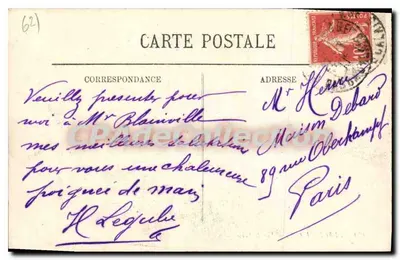 62
CARTE POSTALE
CORRESPONDANCE
ADRESSE
Veuillez presenter pour
moi à Mr Blainville
mes meilleures
pour vous une chaleureuse
poignée de main
H Léguilu
Mr Henri
Maison Debard
89 rue Oberkampf
Paris